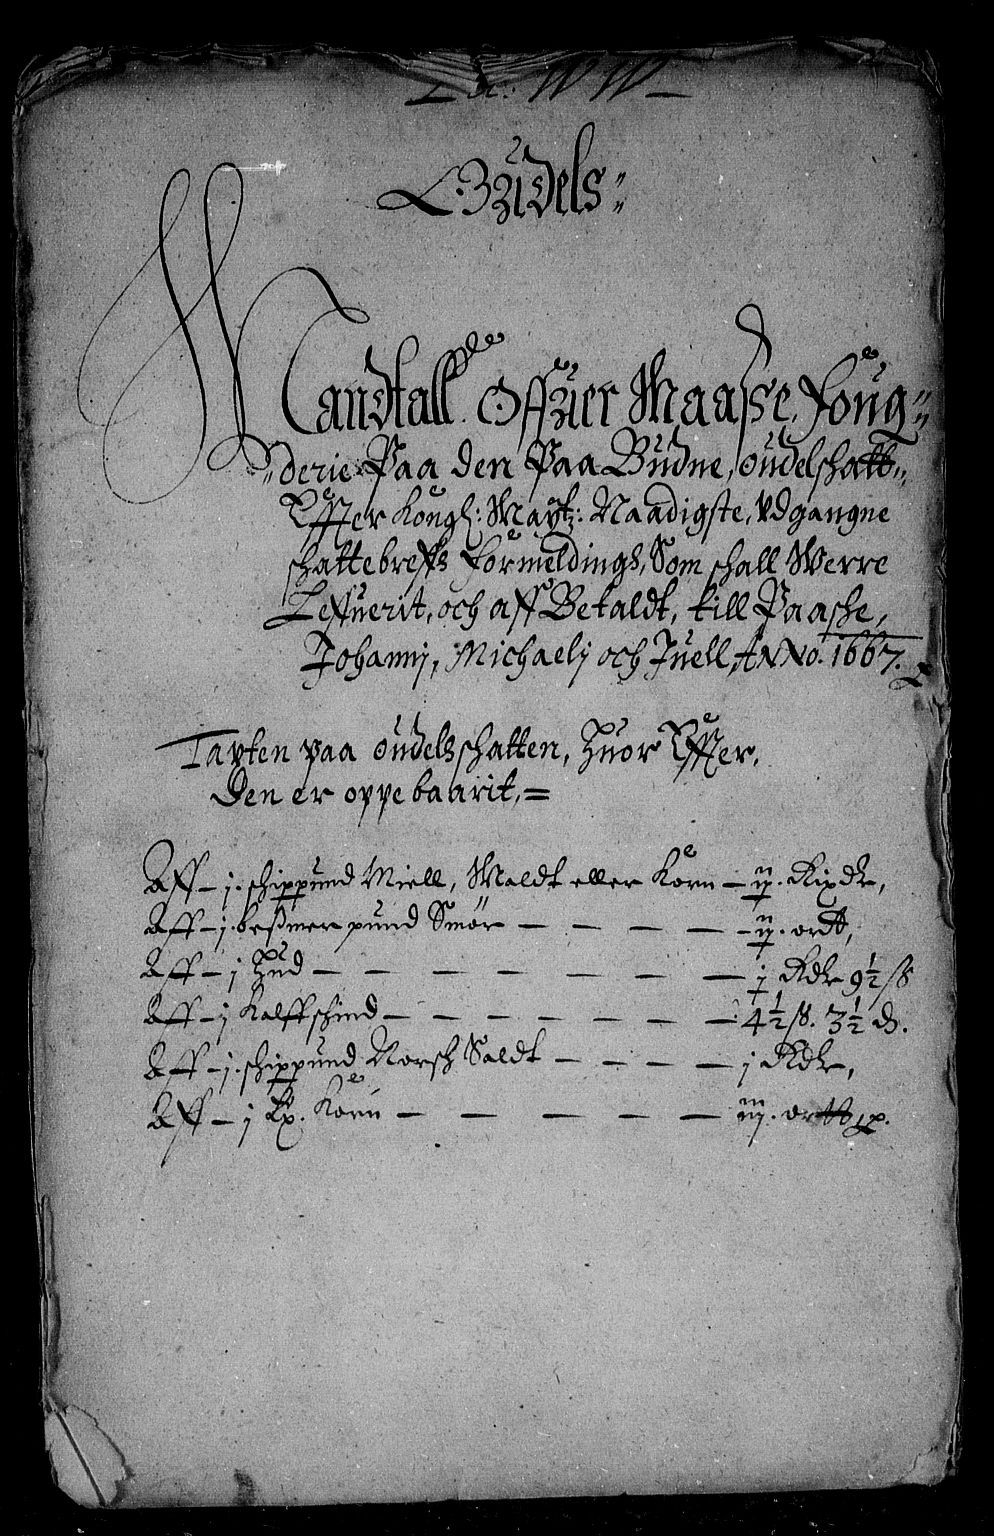 Lit: WW
Oudels=
Mandtall Offuer Maasse foug=
=derie Paa den Paa Budne, oudelschatt,,
Effter Kongl: Maytz: Naadigste, vdgangne
schattebreffs formeldings, Som schall Werre
Leffuerit, och aff Betaldt, till Paasche,
Johannj, Michaelj och Juell, ANNo. 1667.
Taxten paa oudelsschatten, huor Effter,
den er oppebaarit,=
Aff – j. schippund Miell, Maldt eller Korn – ij. Rixdr,
Aff – j. beszmer pund Smör — — — — ij. ordt,
Aff – j hud — — — — — — — j Rdr 9½ ß
Aff – j Kalffschind — — — — — — 4½ ß. 3½ d.
Aff – j. schippund Norsch Saldt — — — j Rdr,
Aff – j Lp. Korn — — — — — iij. ortt